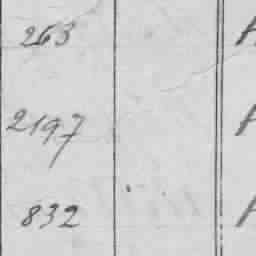 263
2197
832